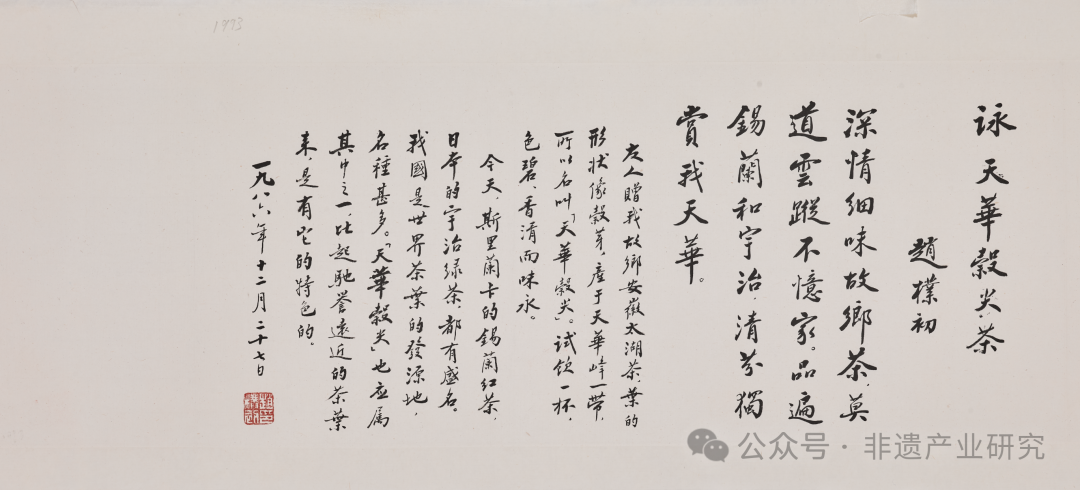 詠天華穀尖茶
趙樸初
深情細味故鄉茶,莫
道雲蹤不憶家。品遍
錫蘭和宇治,清芬獨
賞我天華。
友人贈我故鄉安徽太湖茶,葉的
形狀像穀芽,產于天華峰一带,
所以名叫「天華穀尖」。试飲一杯,
色碧、香清而味永。
今天,斯里蘭卡的錫蘭红茶,
日本的宇治绿茶,都有盛名。
我國是世界茶葉的發源地,
名種甚多。「天華穀尖」也应属
其中之一,比起馳誉遠近的茶葉
来,是有它的特色的。
一九八六年十二月二十七日
1973
公众号·非遗产业研究